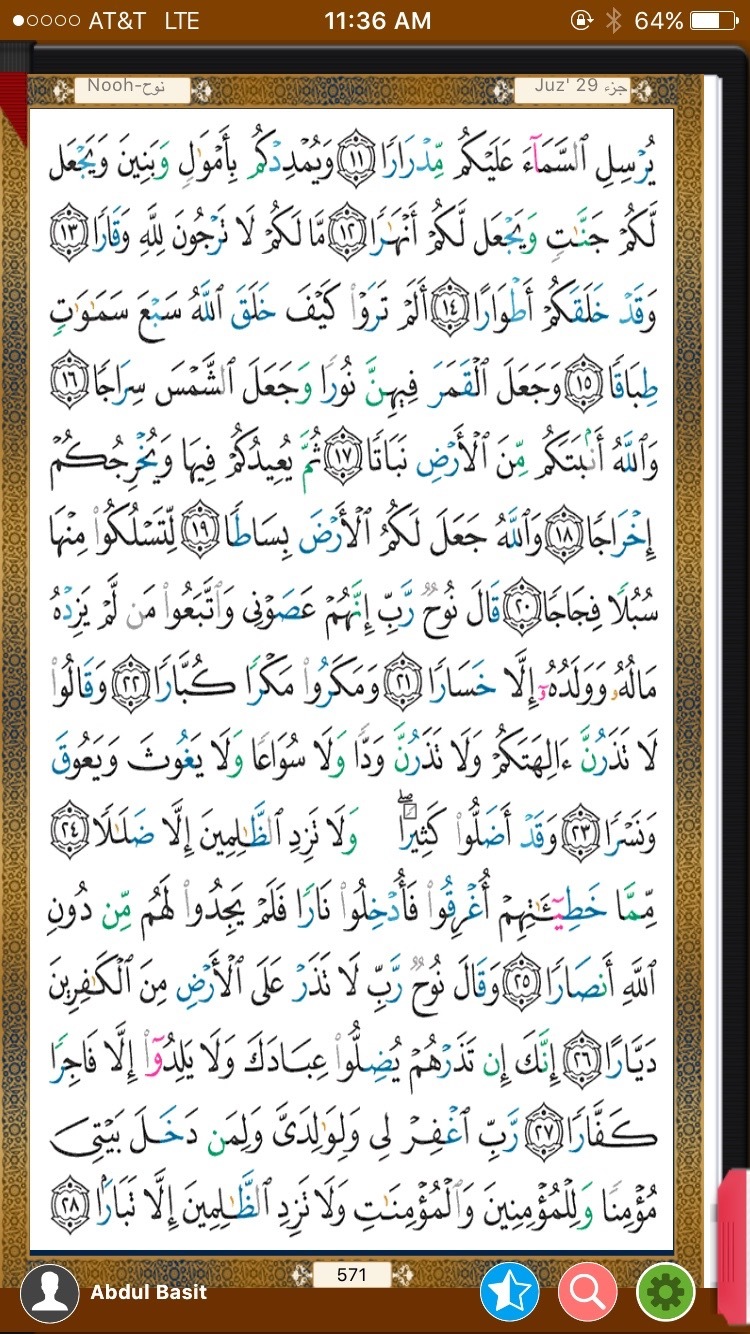 AT&T LTE 11:36 AM 64%
Nooh-نوح جزء Juz' 29
يُرْسِلِ ٱلسَّمَآءَ عَلَيْكُم مِّدْرَارًا ١١ وَيُمْدِدْكُم بِأَمْوَٰلٍ وَبَنِينَ وَيَجْعَل
لَّكُمْ جَنَّٰتٍ وَيَجْعَل لَّكُمْ أَنْهَٰرًا ١٢ مَّا لَكُمْ لَا تَرْجُونَ لِلَّهِ وَقَارًا ١٣
وَقَدْ خَلَقَكُمْ أَطْوَارًا ١٤ أَلَمْ تَرَوْا۟ كَيْفَ خَلَقَ ٱللَّهُ سَبْعَ سَمَٰوَٰتٍ
طِبَاقًا ١٥ وَجَعَلَ ٱلْقَمَرَ فِيهِنَّ نُورًا وَجَعَلَ ٱلشَّمْسَ سِرَاجًا ١٦
وَٱللَّهُ أَنۢبَتَكُم مِّنَ ٱلْأَرْضِ نَبَاتًا ١٧ ثُمَّ يُعِيدُكُمْ فِيهَا وَيُخْرِجُكُمْ
إِخْرَاجًا ١٨ وَٱللَّهُ جَعَلَ لَكُمُ ٱلْأَرْضَ بِسَاطًا ١٩ لِّتَسْلُكُوا۟ مِنْهَا
سُبُلًا فِجَاجًا ٢٠ قَالَ نُوحٌ رَّبِّ إِنَّهُمْ عَصَوْنِى وَٱتَّبَعُوا۟ مَن لَّمْ يَزِدْهُ
مَالُهُۥ وَوَلَدُهُۥٓ إِلَّا خَسَارًا ٢١ وَمَكَرُوا۟ مَكْرًا كُبَّارًا ٢٢ وَقَالُوا۟
لَا تَذَرُنَّ ءَالِهَتَكُمْ وَلَا تَذَرُنَّ وَدًّا وَلَا سُوَاعًا وَلَا يَغُوثَ وَيَعُوقَ
وَنَسْرًا ٢٣ وَقَدْ أَضَلُّوا۟ كَثِيرًا ۖ وَلَا تَزِدِ ٱلظَّٰلِمِينَ إِلَّا ضَلَٰلًا ٢٤
مِّمَّا خَطِيٓـَٰٔتِهِمْ أُغْرِقُوا۟ فَأُدْخِلُوا۟ نَارًا فَلَمْ يَجِدُوا۟ لَهُم مِّن دُونِ
ٱللَّهِ أَنصَارًا ٢٥ وَقَالَ نُوحٌ رَّبِّ لَا تَذَرْ عَلَى ٱلْأَرْضِ مِنَ ٱلْكَٰفِرِينَ
دَيَّارًا ٢٦ إِنَّكَ إِن تَذَرْهُمْ يُضِلُّوا۟ عِبَادَكَ وَلَا يَلِدُوٓا۟ إِلَّا فَاجِرًا
كَفَّارًا ٢٧ رَّبِّ ٱغْفِرْ لِى وَلِوَٰلِدَىَّ وَلِمَن دَخَلَ بَيْتِىَ
مُؤْمِنًا وَلِلْمُؤْمِنِينَ وَٱلْمُؤْمِنَٰتِ وَلَا تَزِدِ ٱلظَّٰلِمِينَ إِلَّا تَبَارًۢا ٢٨
571
Abdul Basit